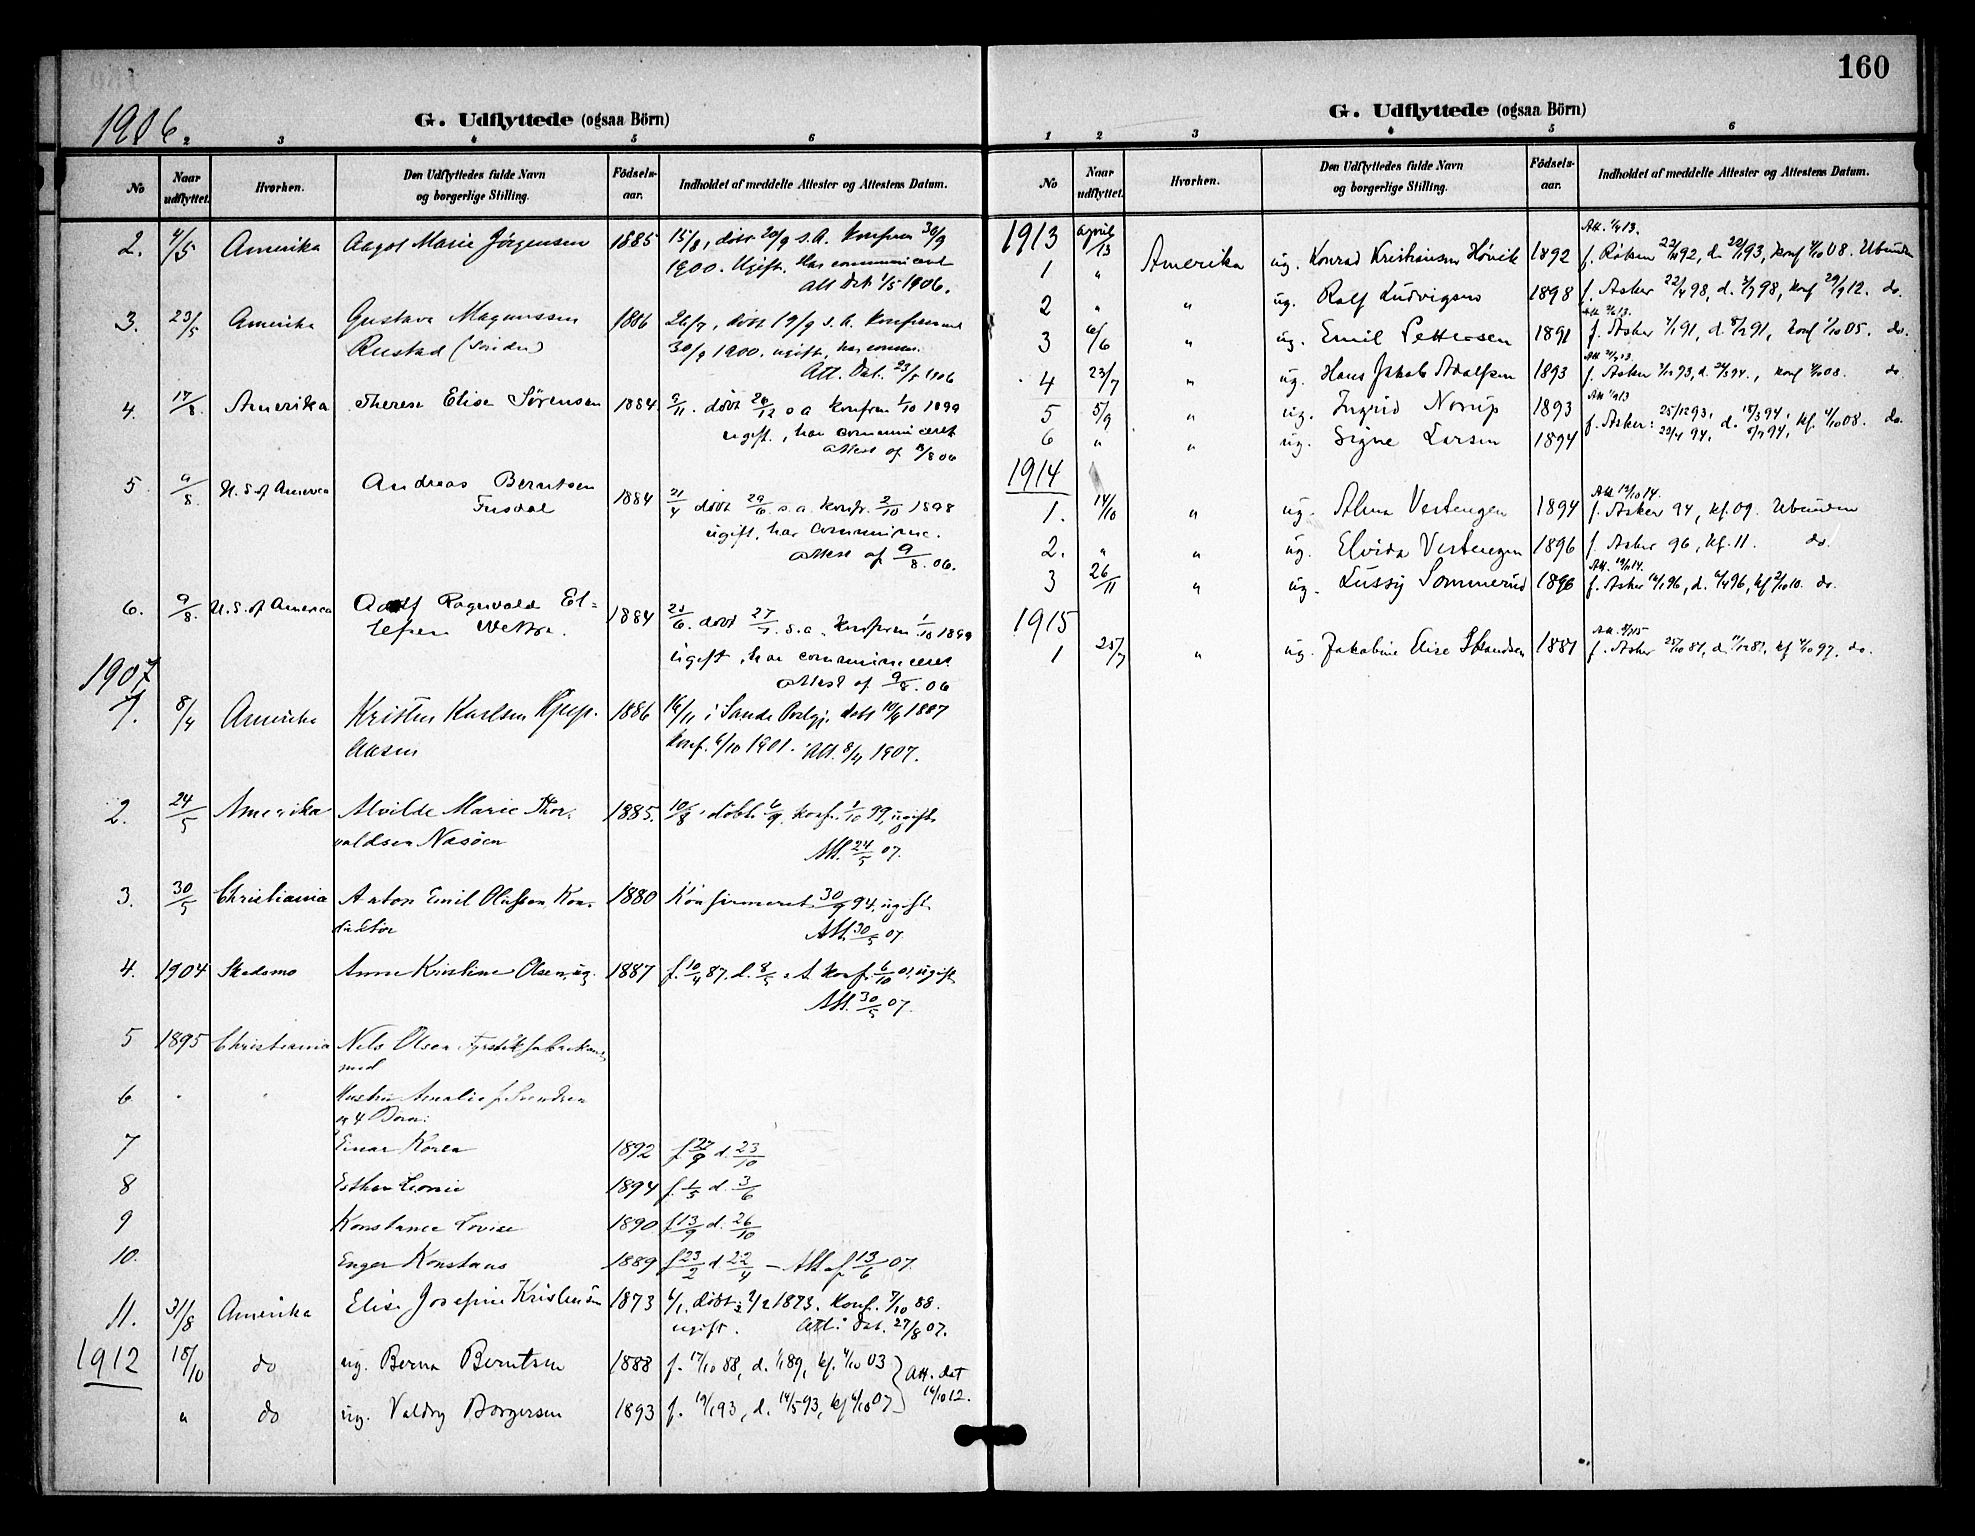 160
1906.
G. Udflyttede (ogsaa Börn)
2 3 4 5 6
No
Naar udflyttet.
Hvorhen.
Den Udflyttedes fulde Navn og borgerlige Stilling.
Födsels-aar.
Indholdet af meddelte Attester og Attestens Datum.
2. 4/5 Amerika Aagot Marie Jörgensen 1885 15/8, döbt 20/9 s.A. Konfirm 30/9
1900. Ugift. Har communiceret
Att Dat. 1/5 1906.
3. 23/5 Amerika Gustava Magnussen 1886 26/7, döbt 19/9 s.A. Konfirmeret
Rustad 30/9 1900. ugift, har comm.
Att. Dat. 23/5 1906
4. 17/8. Amerika Therese Elise Sörensen 1884 9/11. döbt 26/12 s a Konfirm 1/10 1899
ugift., har communiceret
Attest af 11/8 06
5. 9/8. U. S. of America Andreas Berntsen 1884 21/4 döbt 29/6 s.a. Konfr. 2/10 1898
Fusdal
ugift, har commune.
Attest af 9/8. 06.
6. 9/8. U. S. of America Adolf Ragnvald El= 1884 25/6. döbt 27/7. s.a. Konfirm 1/10 1899
lefsen Wettre.
ugift, har communiceret
Attest af 9/8. 06
1907
1. 8/4 Amerika Kristen Karlsen 1886 16/11 i Sande Prestgj. döbt 10/4 1887
Aasen Konf. 6/10 1901. Att. 8/4 1907.
2. 24/5 Amerika Alvilde Marie Thor- 1885. 10/8. döbt 6/9. Konf. 1/10 99, ugift
valdsen Næsöen Att. 24/5 07.
3. 30/5 Christiania Anton Emil Olufsen Kon- 1880 Konfirmeret 30/9 94, ugift
duktör Att. 30/5 07
4. 1904 Skedsmo Anne Kristine Olsen, ug. 1887 f. 10/4 87. d. 8/5 s. A. Konf. 6/10 01, ugift
Att. 30/5 07.
5 1895 Christiania Nils Olsen Fyrstikfabrikant
med
6 " " Hustru Amalie f. Svendsen
og 4 Börn:
7 Einar Korea 1892 f. 27/9 d. 23/10
8 Esther Leonie 1894 f. 1/5 d. 3/6
9 Konstance Lovise 1890 f 13/9 d. 26/10
10. Enger Konstans 1889 f 23/2 d 22/4 – Att af 13/6 07.
11. 31/8 Amerika Elise Josefine Kristensen 1873 6/1. döbt 2/2 1873. Konf. 7/10 88.
ugift. Att: Dat. 27/8 07.
1912 18/10 do ug. Berna Berntsen 1888 f. 17/10 88, d. 1/1 89, kf. 4/10 03
Att. dat 16/10 12.
" do ug. Valdry Borgersen 1893 f. 19/1 93, d. 14/5 93, kf 6/10 07
G. Udflyttede (ogsaa Börn)
1 2 3 4 5 6
No
Naar udflyttet.
Hvorhen.
Den Udflyttedes fulde Navn og borgerlige Stilling.
Födsels-aar.
Indholdet af meddelte Attester og Attestens Datum.
1913 april/13 Att. 1/4 13.
1 " Amerika ug. Konrad Kristiansen Høvik 1892 f. Røken 22/11 92, d. 22/1 93, konf 4/10 08. Ubunden
2 " " ug. Rolf Ludvigsen 1898 f. Asker 22/4 98, d. 3/7 98, konf 29/9 12. do.
3 6/6 " ug. Emil Pettersen 1891 f. Asker 4/1 91, d. 8/2 91, konf 1/10 05. do.
4 23/7 " ug. Hans Jakob Adolfsen 1893 f. Asker 7/10 93, d. 26/3 94, konf 4/10 08. do
5 5/9 " ug. Ingrid Norup 1893 f. Asker: 25/12 93, d. 18/3 94, kf. 4/10 08. do.
6 " " ug. Signe Larsen 1894 22/4 94, 8/7 94,
1914
Att 14/10 14.
1. 14/10 " ug. Alma Vestengen 1894 f. Asker 94, kf. 09. Ubunden
2. " " ug. Elvida Vestengen 1896 f. Asker 96, kf. 11. do.
3 26/11 " ug. Lussy Sommerud 1896 f. Asker 16/1 96, d. 6/4 96, kf 2/10 10. do.
1915
1 25/7 " ug. Jakobine Elise Strandsen 1881 f. Asker 25/10 81, d. 11/12 81, kf 4/10 97. do.